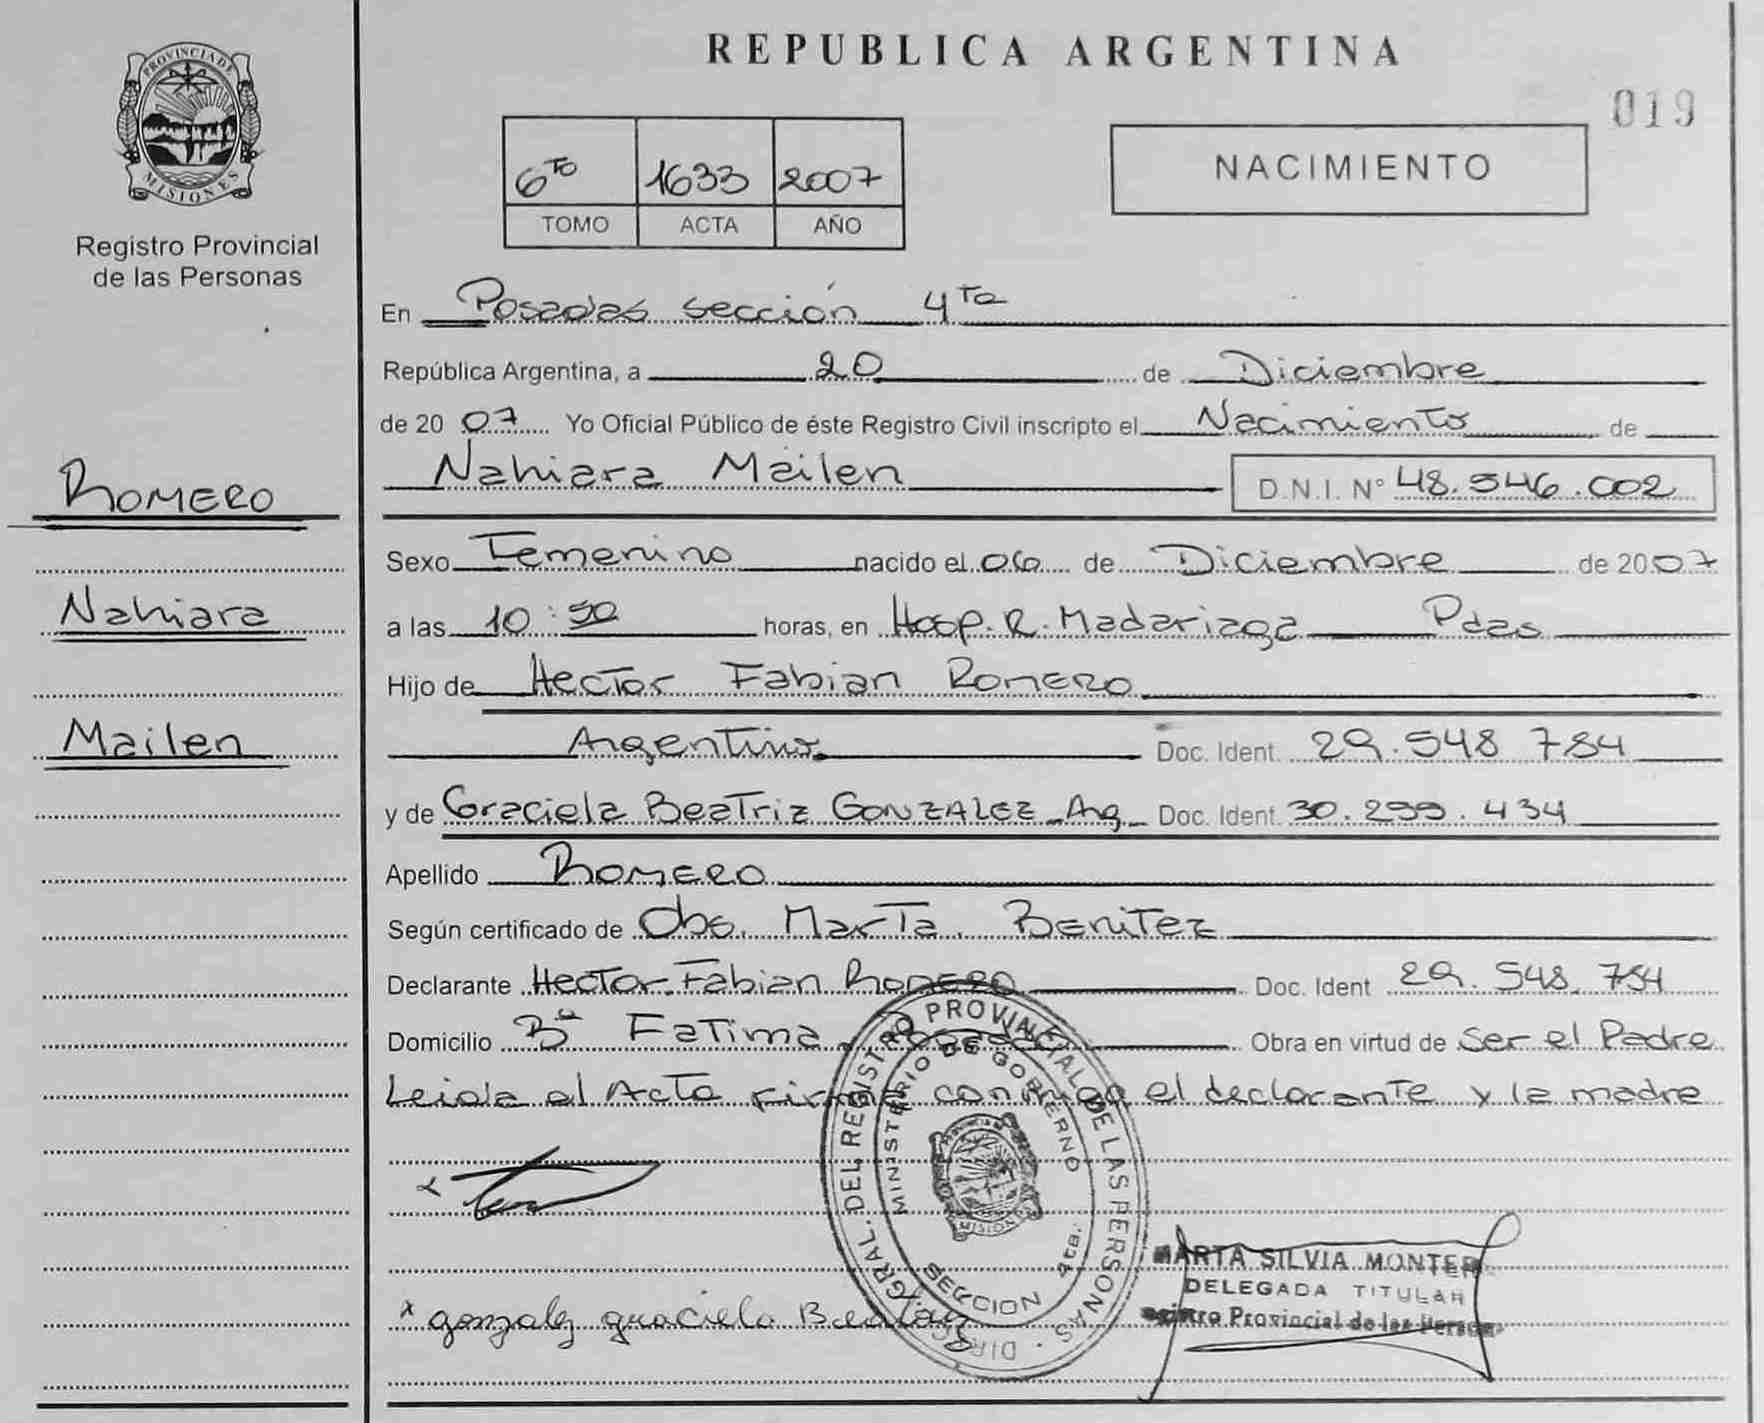 PROVINCIA DE
MISIONES
Registro Provincial
de las Personas
ROMERO
Nahiara
Mailen
REPUBLICA ARGENTINA
019
6to 1633 2007
TOMO ACTA AÑO
NACIMIENTO
En Posadas sección 4ta
República Argentina, a 20 de Diciembre
de 2007 Yo Oficial Público de éste Registro Civil inscripto el Nacimiento de
Nahiara Mailen D.N.I. Nº 48.546.002
Sexo Femenino nacido el 06 de Diciembre de 2007
a las 10:50 horas, en Hosp. R. Madariaga Pdas
Hijo de Hector Fabian Romero
Argentino Doc. Ident. 29.548 784
y de Graciela Beatriz GONZALEZ Arg Doc. Ident. 30.299.434
Apellido Romero
Según certificado de Obs. Marta Benitez
Declarante Hector Fabian Romero Doc. Ident 29.548.784
Domicilio Bº Fatima Posadas Obra en virtud de ser el Padre
Leida el Acta firma conmigo el declarante y la madre
DIREC. GRAL. DEL REGISTRO PROVINCIAL DE LAS PERSONAS
MINISTERIO DE GOBIERNO
MISIONES
SECCION 4ta.
x gonzalez graciela Beatriz
MARTA SILVIA MONTER
DELEGADA TITULAR
Registro Provincial de las Person